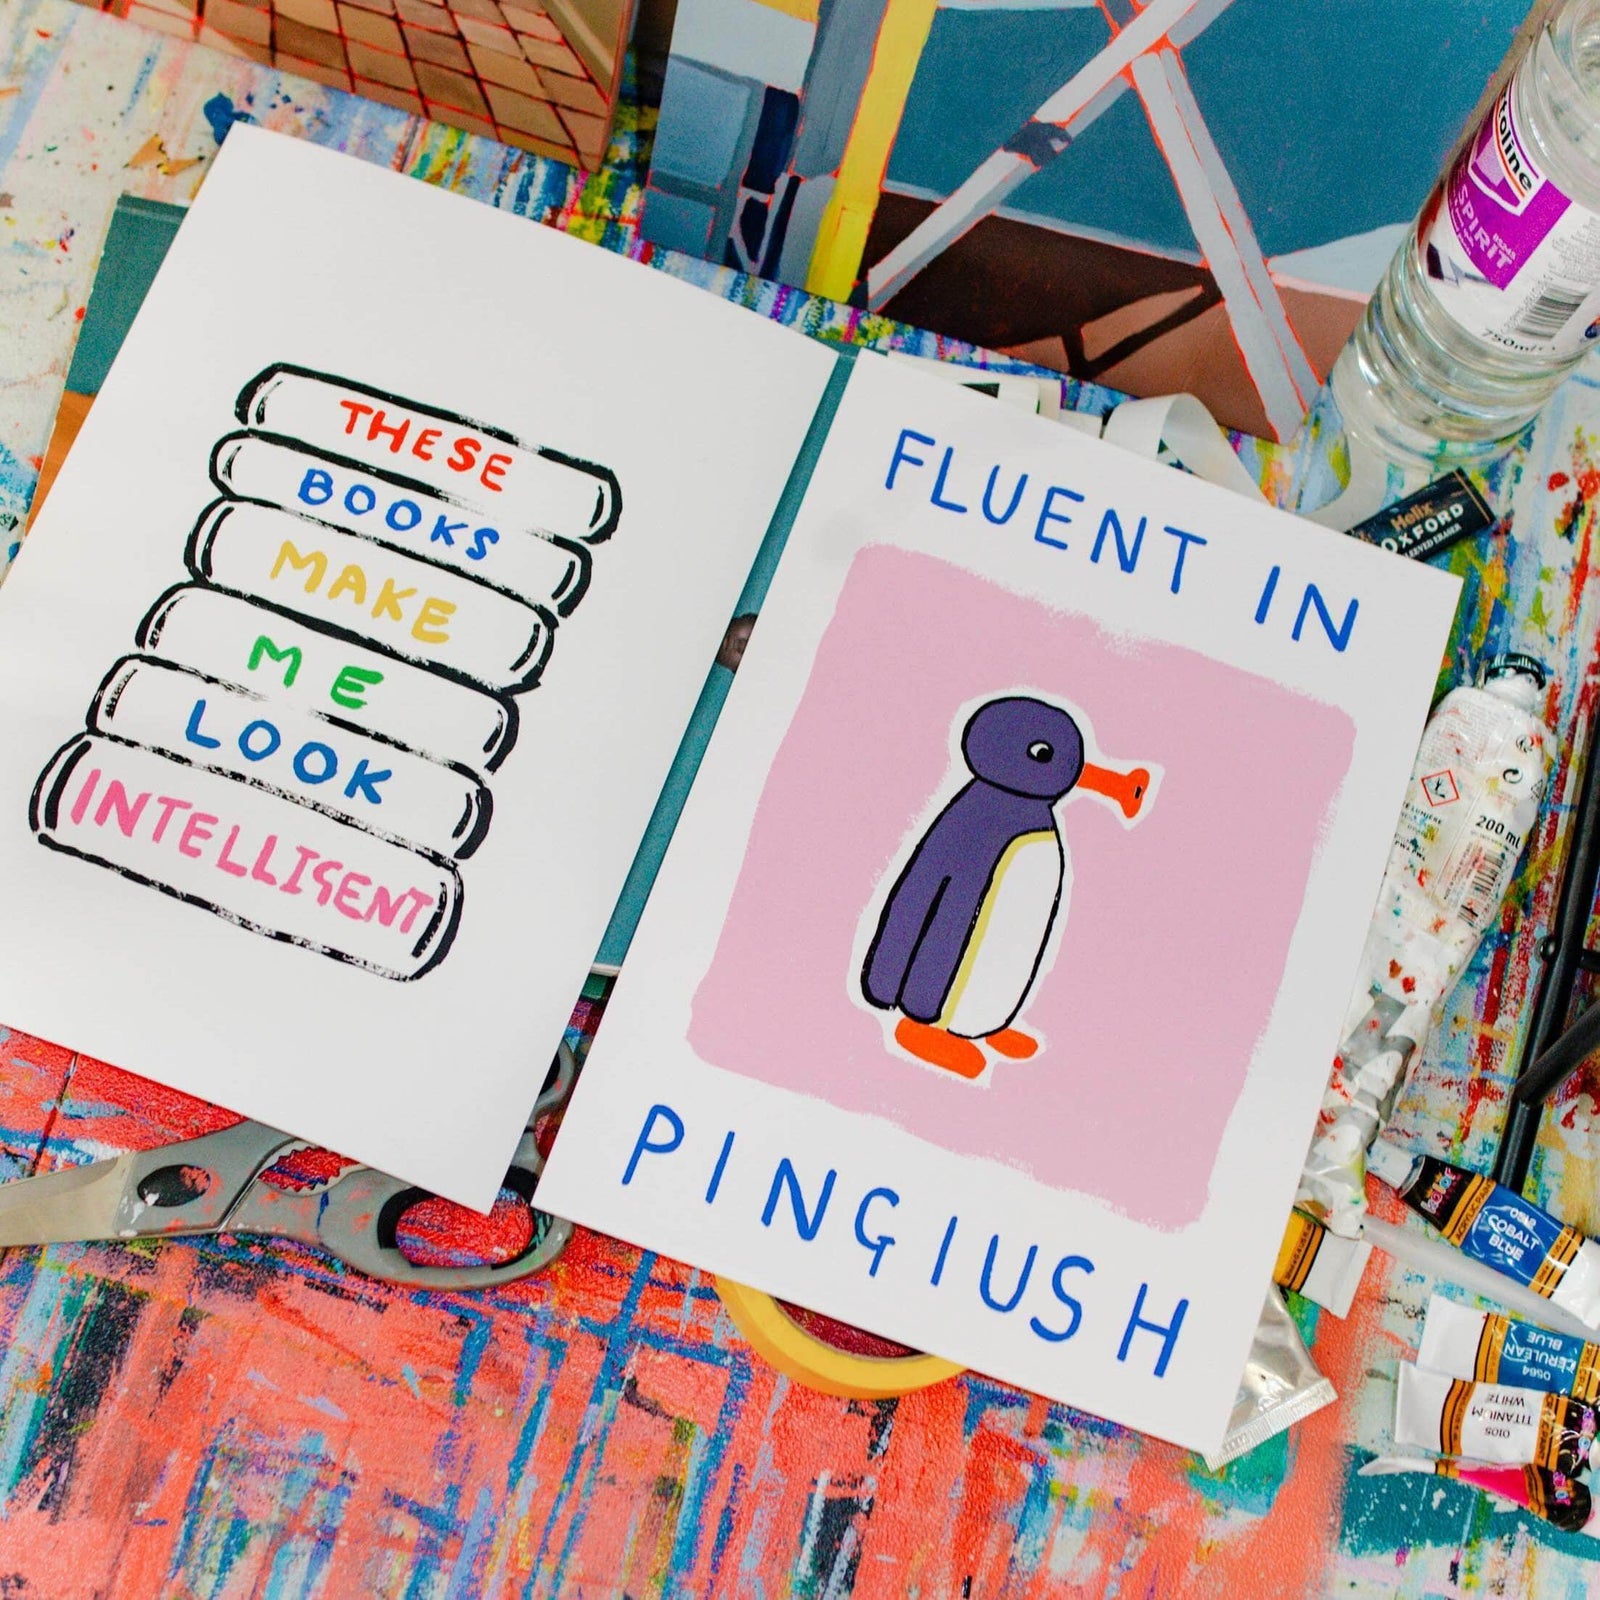 THESE
BOOKS
MAKE
ME
LOOK
INTELLIGENT
FLUENT IN
PINGIUSH
SPIRIT
750ml
Helix
OXFORD
200 ml
COBALT
BLUE
0564
CERULEAN
BLUE
0105
TITANIUM
WHITE